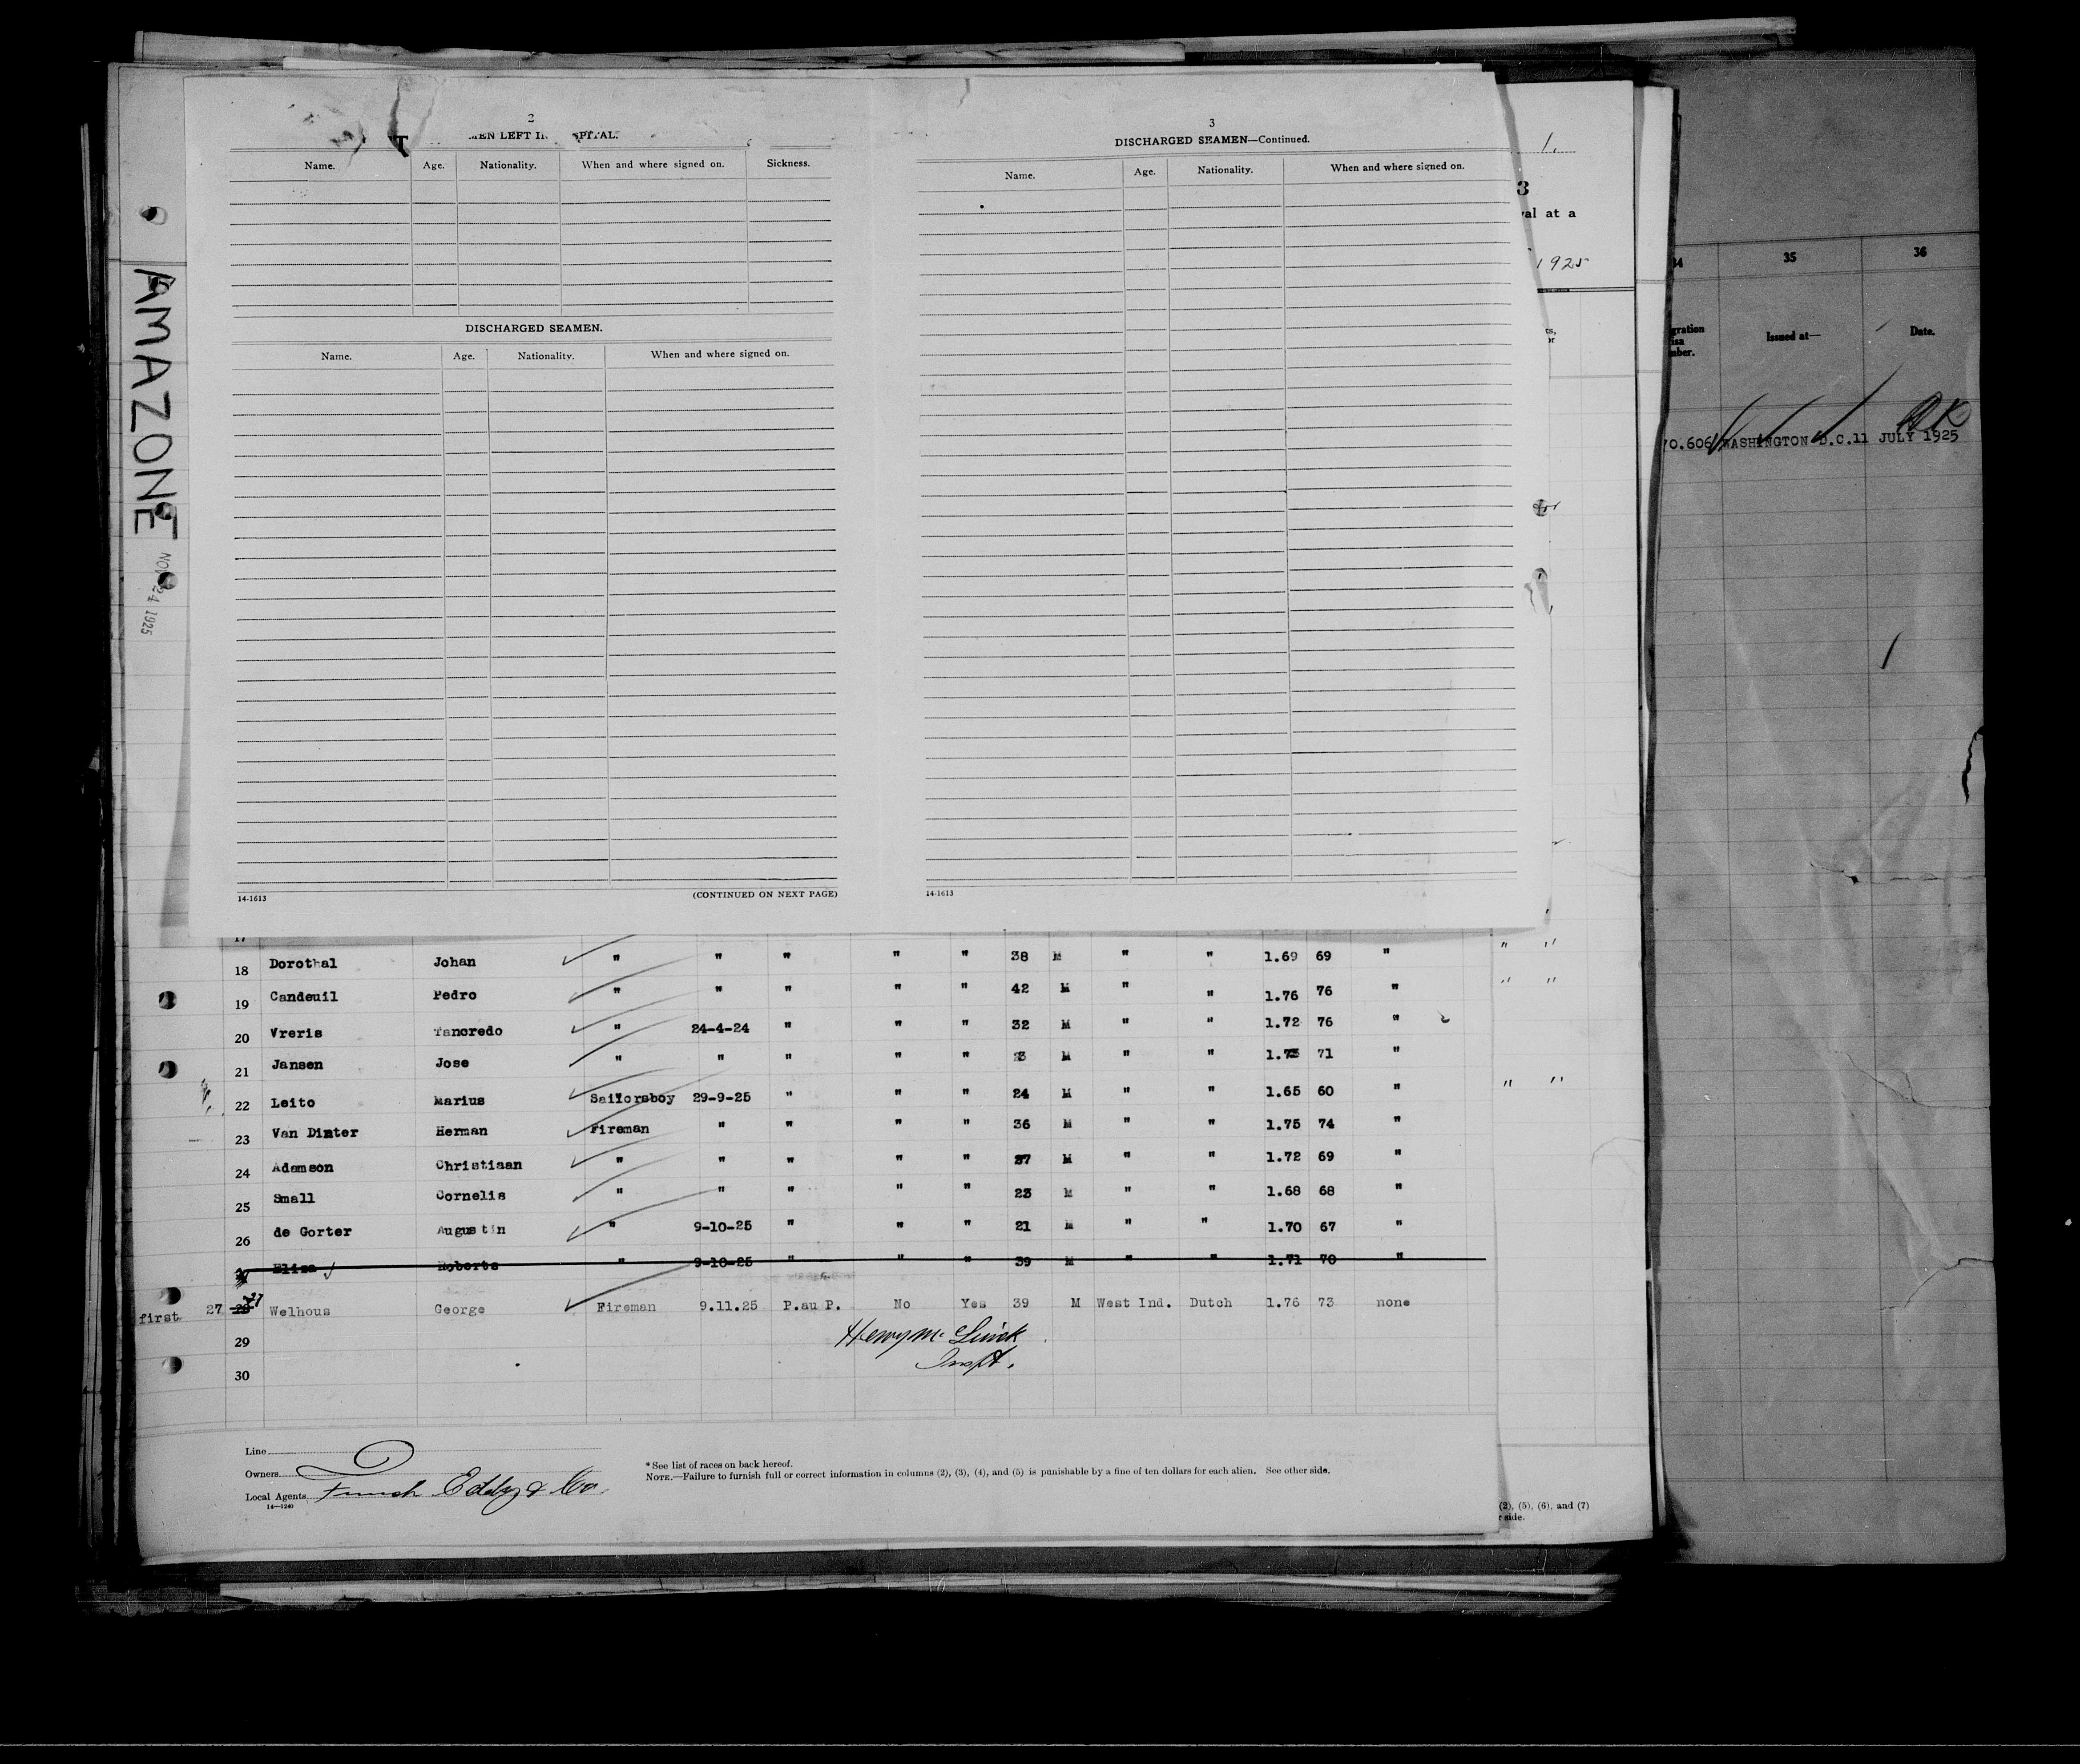 AMAZONE
NOV 24 1925
2
MEN LEFT IN HOSPITAL.
Name. Age. Nationality. When and where signed on. Sickness.
DISCHARGED SEAMEN.
Name. Age. Nationality. When and where signed on.
(CONTINUED ON NEXT PAGE)
14-1613
3
DISCHARGED SEAMEN—Continued.
Name. Age. Nationality. When and where signed on.
14-1613
1.
3
val at a
1925
34 35 36
gration
isa
mber.
Issued at—
Date.
OK
70.606 WASHINGTON D.C. 11 JULY 1925
17
18 Dorothal Johan " " " " " 38 M " " 1.69 69 " " "
19 Candeuil Pedro " " " " " 42 M " " 1.76 76 " " "
20 Vreris Tancredo " 24-4-24 " " " 32 M " " 1.72 76 "
21 Jansen Jose " " " " " M " " 71 "
22 Leito Marius Sailorsboy 29-9-25 " " " 24 M " " 1.65 60 " " "
23 Van Dinter Herman Fireman " " " " 36 M " " 1.75 74 "
24 Adamson Christiaan " " " " " 37 M " " 1.72 69 "
25 Small Cornelis " " " " " 23 M " " 1.68 68 "
26 de Gorter Augustin " 9-10-25 " " " 21 M " " 1.70 67 "
27 Eliza Roberto " 9-10-25 " " " 39 M " " 1.71 70 "
first 27 28 27 Welhous George Fireman 9.11.25 P.au P. No Yes 39 M West Ind. Dutch 1.76 73 none
29 Henry M.
30 Inspt.
Line
Owners
Local Agents Funch Eddy & Co.
14—1240
* See list of races on back hereof.
NOTE.—Failure to furnish full or correct information in columns (2), (3), (4), and (5) is punishable by a fine of ten dollars for each alien. See other side.
(2), (5), (6), and (7)
r side.